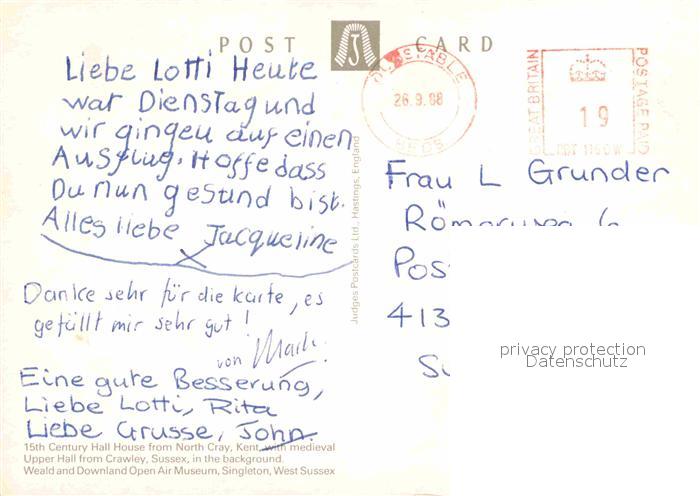 POST CARD
Liebe Lotti Heute
war Dienstag und
wir gingen auf einen
Ausflug. Hoffe dass
Du nun gesund bist.
Alles liebe Jacqueline
Danke sehr für die Karte, es
gefällt mir sehr gut!
von Mark.
Eine gute Besserung,
Liebe Lotti, Rita
Liebe Grusse, John.
15th Century Hall House from North Cray, Kent, with medieval
Upper Hall from Crawley, Sussex, in the background.
Weald and Downland Open Air Museum, Singleton, West Sussex
Judges Postcards Ltd., Hastings, England
DUNSTABLE
26.9.88
BEDS
GREAT BRITAIN
19
POSTAGE PAID
Frau L Grunder
Pos
413
privacy protection
Datenschutz